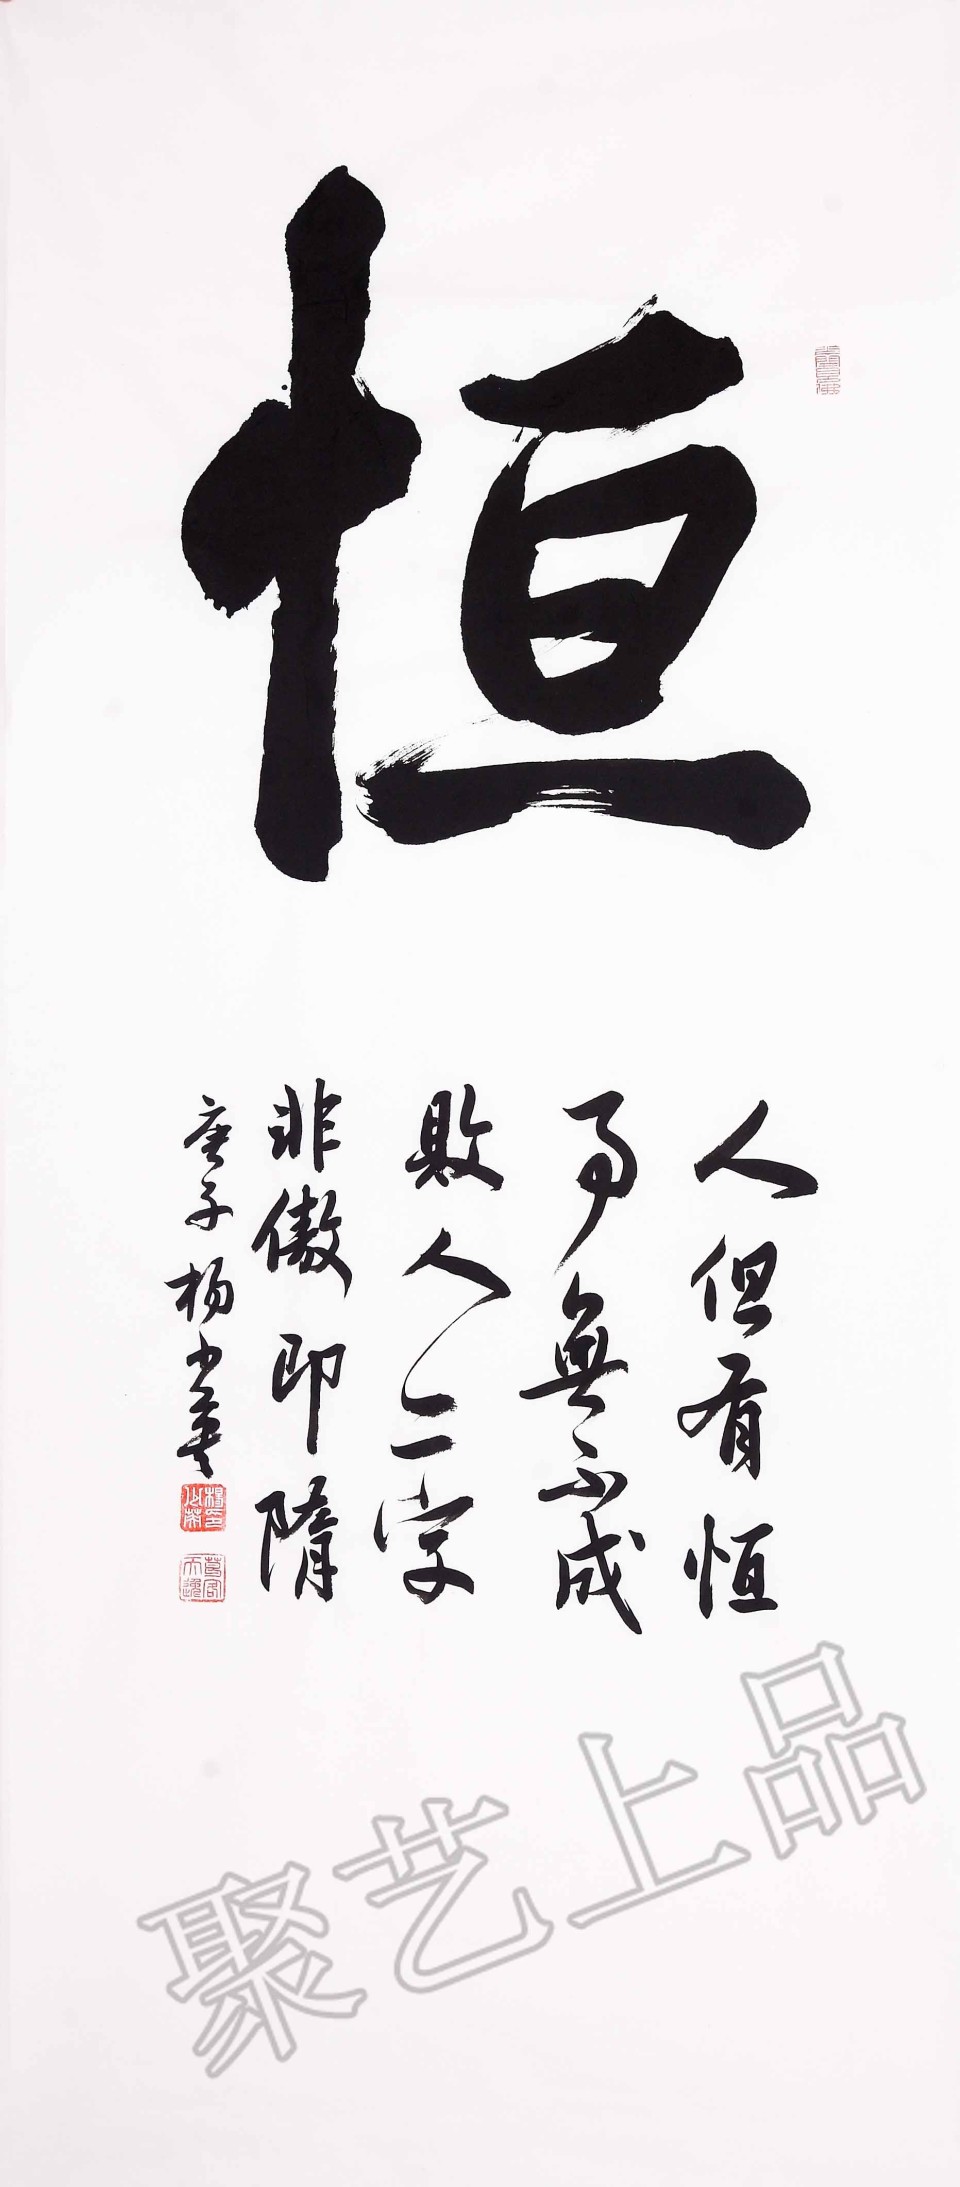 恒
人但有恒
事無不成
敗人二字
非傲即隋
庚子 杨少英
聚艺上品